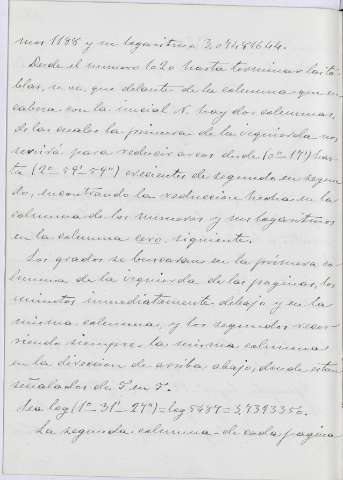 mos 1188 y su logaritmo 3,07481644.
Desde el numero 1020 hasta terminar las ta-
blas, se ve que delante de la columna que en-
cabeza con la inicial N. hay dos columnas,
de las cuales la primera de la izquierda nos
servirá para reducir arcos desde (0º 17') has-
ta (2º 59' 59") crecientes de segundo en segun-
do, encontrando la reduccion hecha en la
columna de los numeros y sus logaritmos
en la columna cero, siguiente.
Los grados se buscaran en la primera co-
lumna de la izquierda de las paginas, los
minutos inmediatamente debajo y en la
misma columna, y los segundos recor-
riendo siempre la misma columna
en la direccion de arriba abajo, donde estan
señalados de 5" en 5".
Sea log (1º 31' 27") = log 5487 = 3,7393350.
La segunda columna de cada pagina